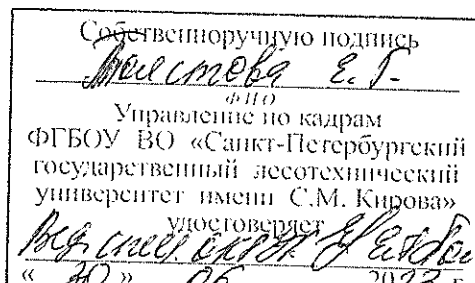 Собственноручную подпись
Толстова Е. Г.
ФИО
Управление по кадрам
ФГБОУ ВО «Санкт-Петербургский
государственный лесотехнический
университет имени С.М. Кирова»
удостоверяет
Вед. спец.
« 30 » 06 2023 г.